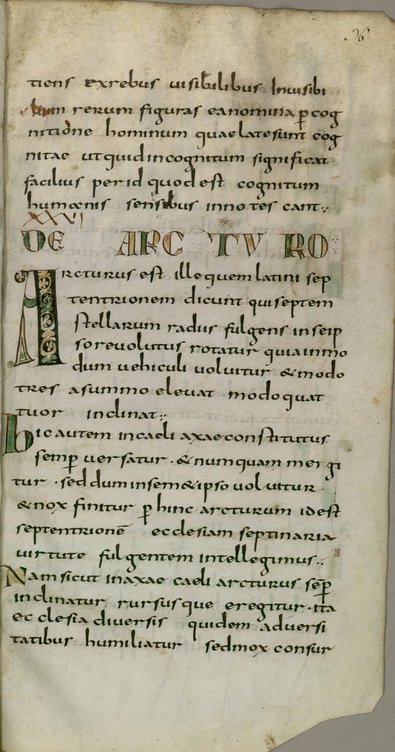 26
tiens exrebus visibilibus invisibi
lium rerum figuras eanomina p̄cog
nitione hominum quae latesunt cog
nitae utquid incognitum significat
facilius per id quod est cognitum
humanis sensibus innotescant
XXVI
DE ARCTURO
Arcturus est ille quem latini sep
tentrionem dicunt qui septem
stellarum radiis fulgens inseip
so revolutus rotatur quia inmo
dum vehiculi volvitur & modo
tres asummo elevat modo quat
tuor inclinat
hic autem in caeli axae constitutus
semp̄ versatur · & numquam mergi
tur · sed dum insem& ipso volvitur
& nox finitur p̄ hinc arcturum id est
septentrionē ecclesiam septinaria
virtute fulgentem intellegimus
Nam sicut in axae caeli arcturus semp̄
inclinatur rursusque eregitur · ita
ecclesia diversis quidem adversi
tatibus humiliatur sed mox consur